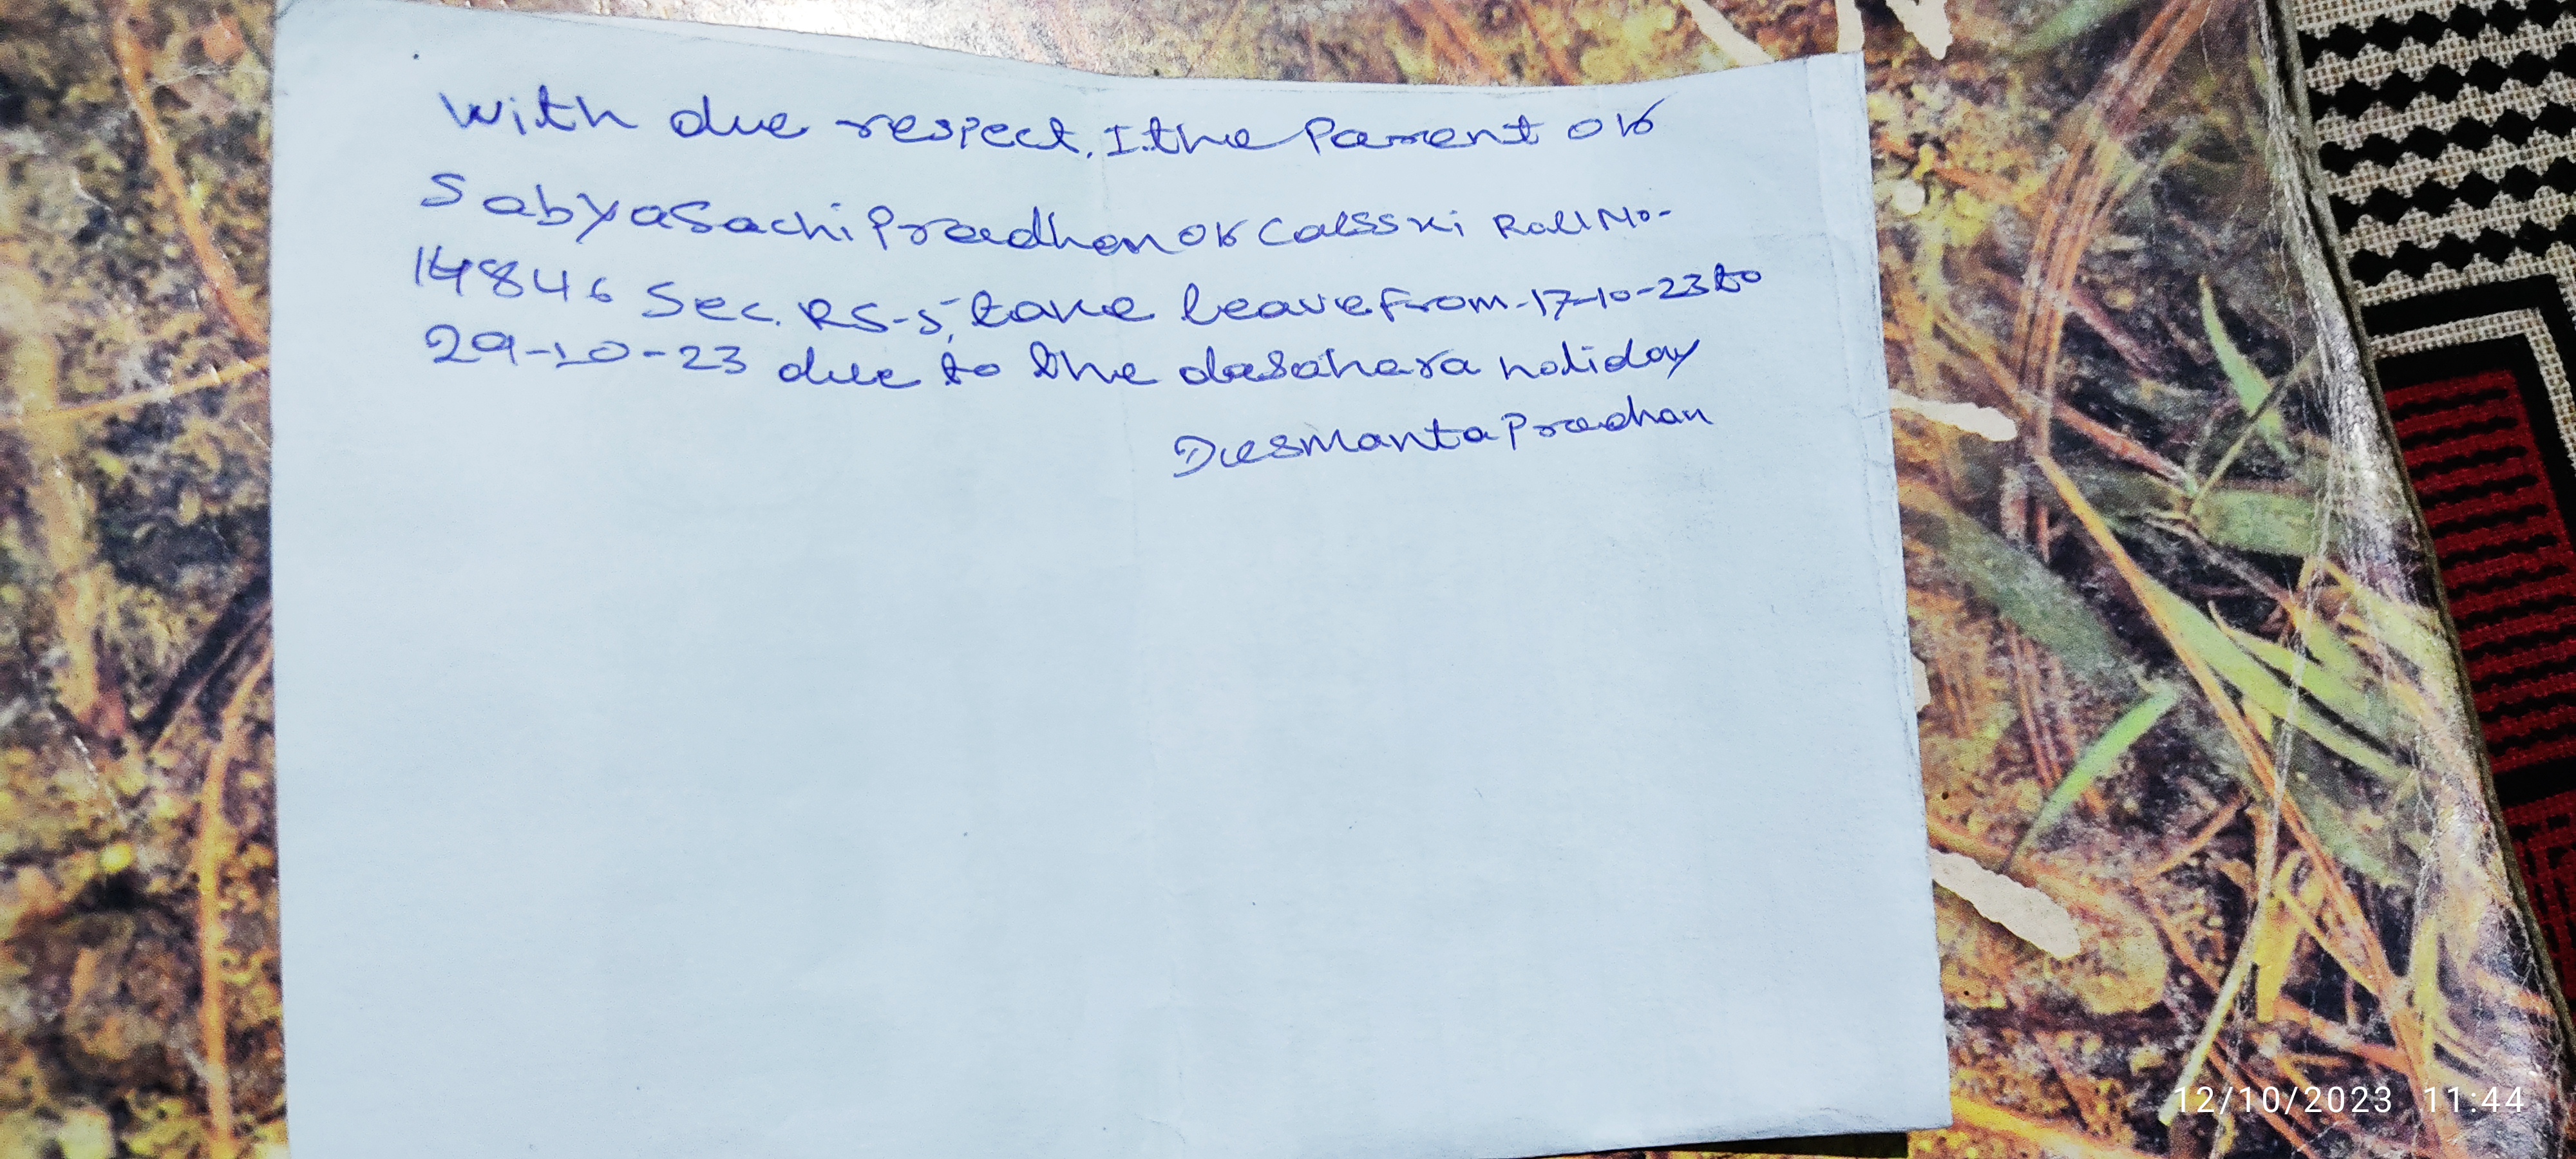 With due respect, I the Parent of
Sabyasachi Pradhan of Calss xi Roll No-
14846 Sec. RS-5, take leave From-17-10-23 to
29-10-23 due to the dasahara holiday
Dusmanta Pradhan
12/10/2023 11:44